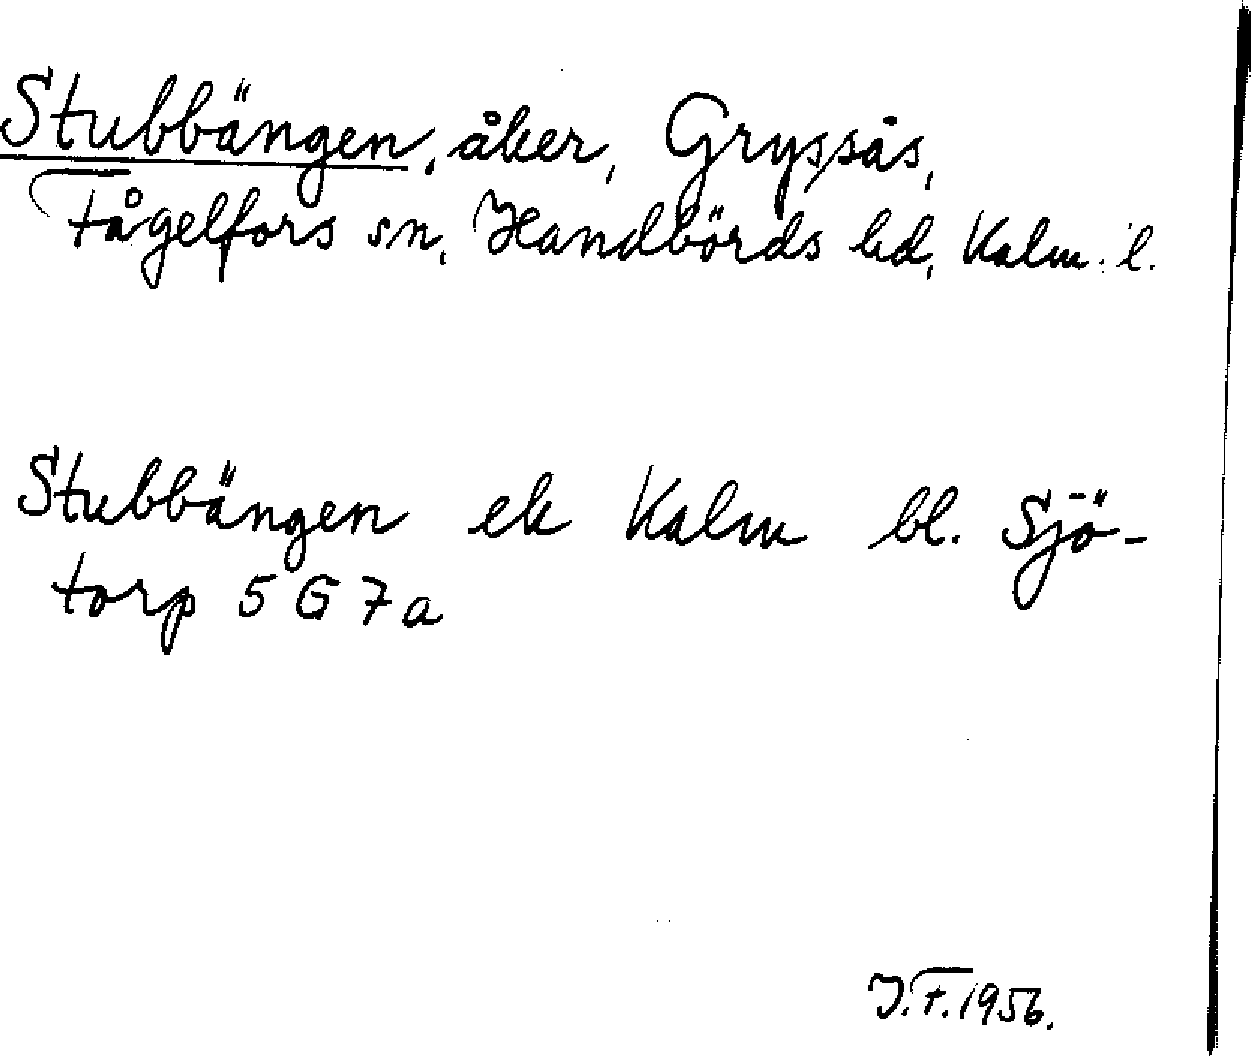 Stubbängen, åker, Gryssås,
Fågelfors sn, Handbörds hd, Kalm. l.
Stubbängen ek Kalm bl. Sjö-
torp 5 G 7 a
J.F. 1956.